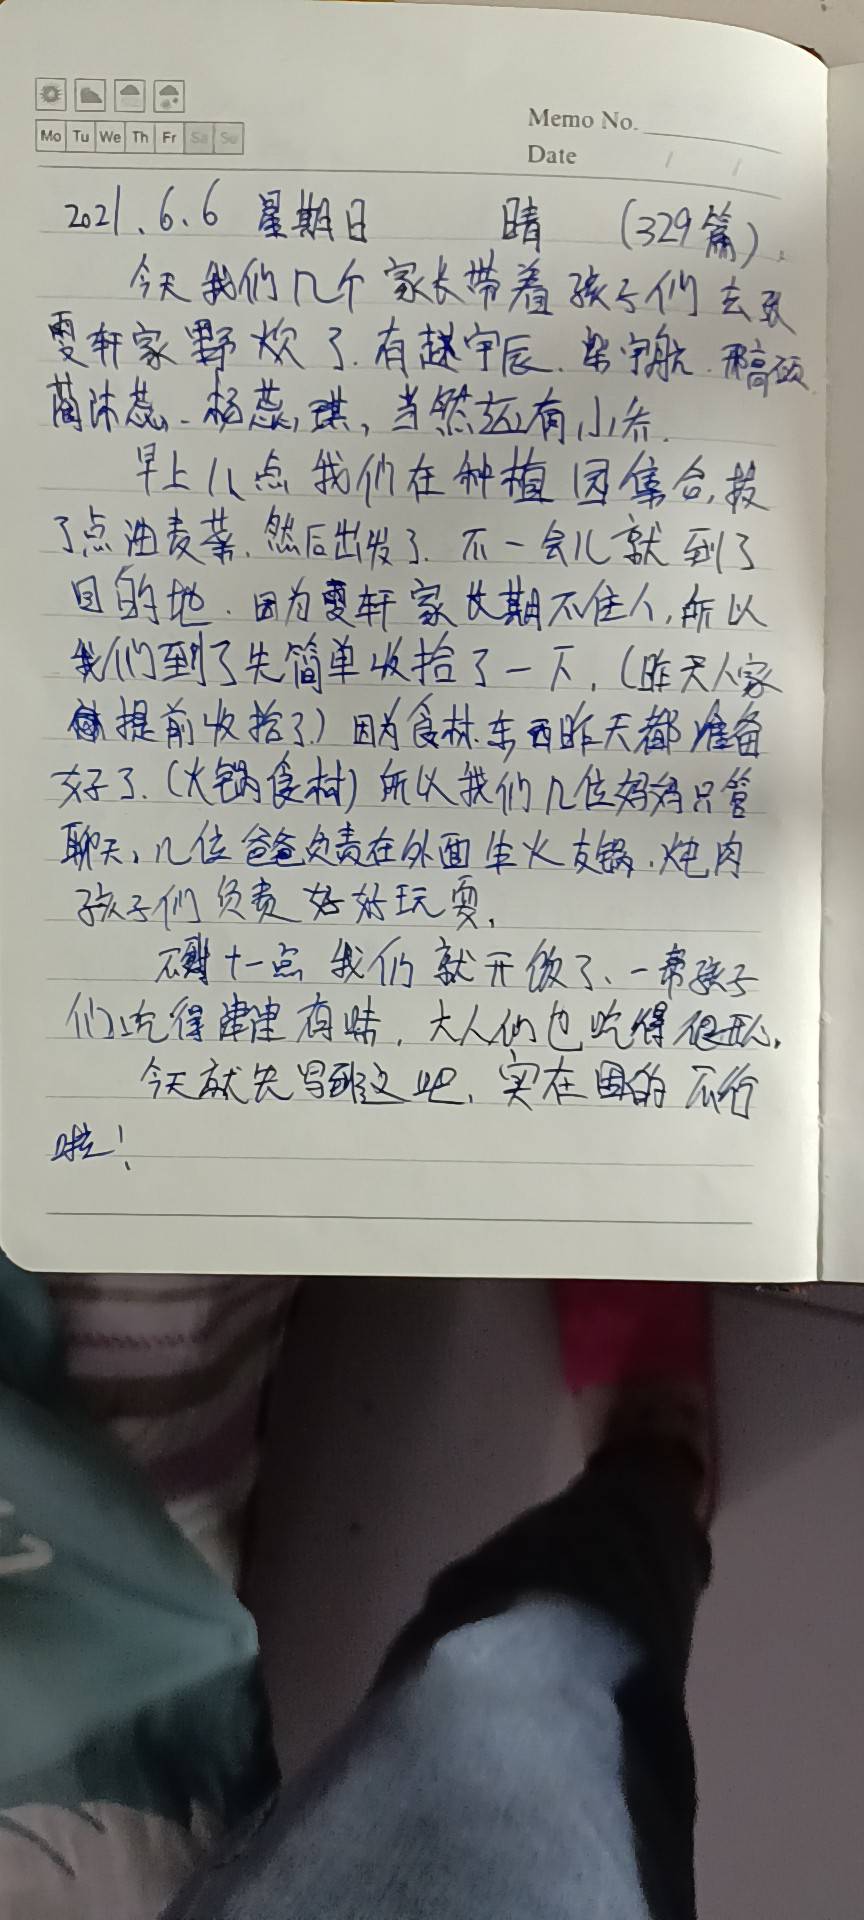 Mo Tu We Th Fr Sa Su
Memo No.
Date / /
2021.6.6 星期日 晴 (329篇)
今天我们几个家长带着孩子们去
雯轩家野炊了.有赵宇辰.梁宇航.邢高硕
蔺沐蕊、杨蕊琪,当然还有小乔.
早上八点我们在种植园集合,拔
了点油麦菜.然后出发了.不一会儿就到了
目的地.因为雯轩家长期不住人,所以
我们到了先简单收拾了一下,(昨天人家
提前收拾了)因为食材.东西昨天都准备
好了.(火锅食材)所以我们几位妈妈只管
聊天,几位爸爸负责在外面生火支锅.炖肉
孩子们负责好好玩耍,
不到十一点我们就开饭了、一帮孩子
们吃得津津有味,大人们也吃得很开心,
今天就先写到这吧,实在困的不行
啦!